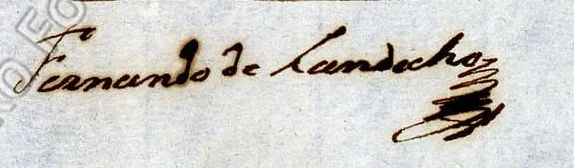 Fernando de Landecho